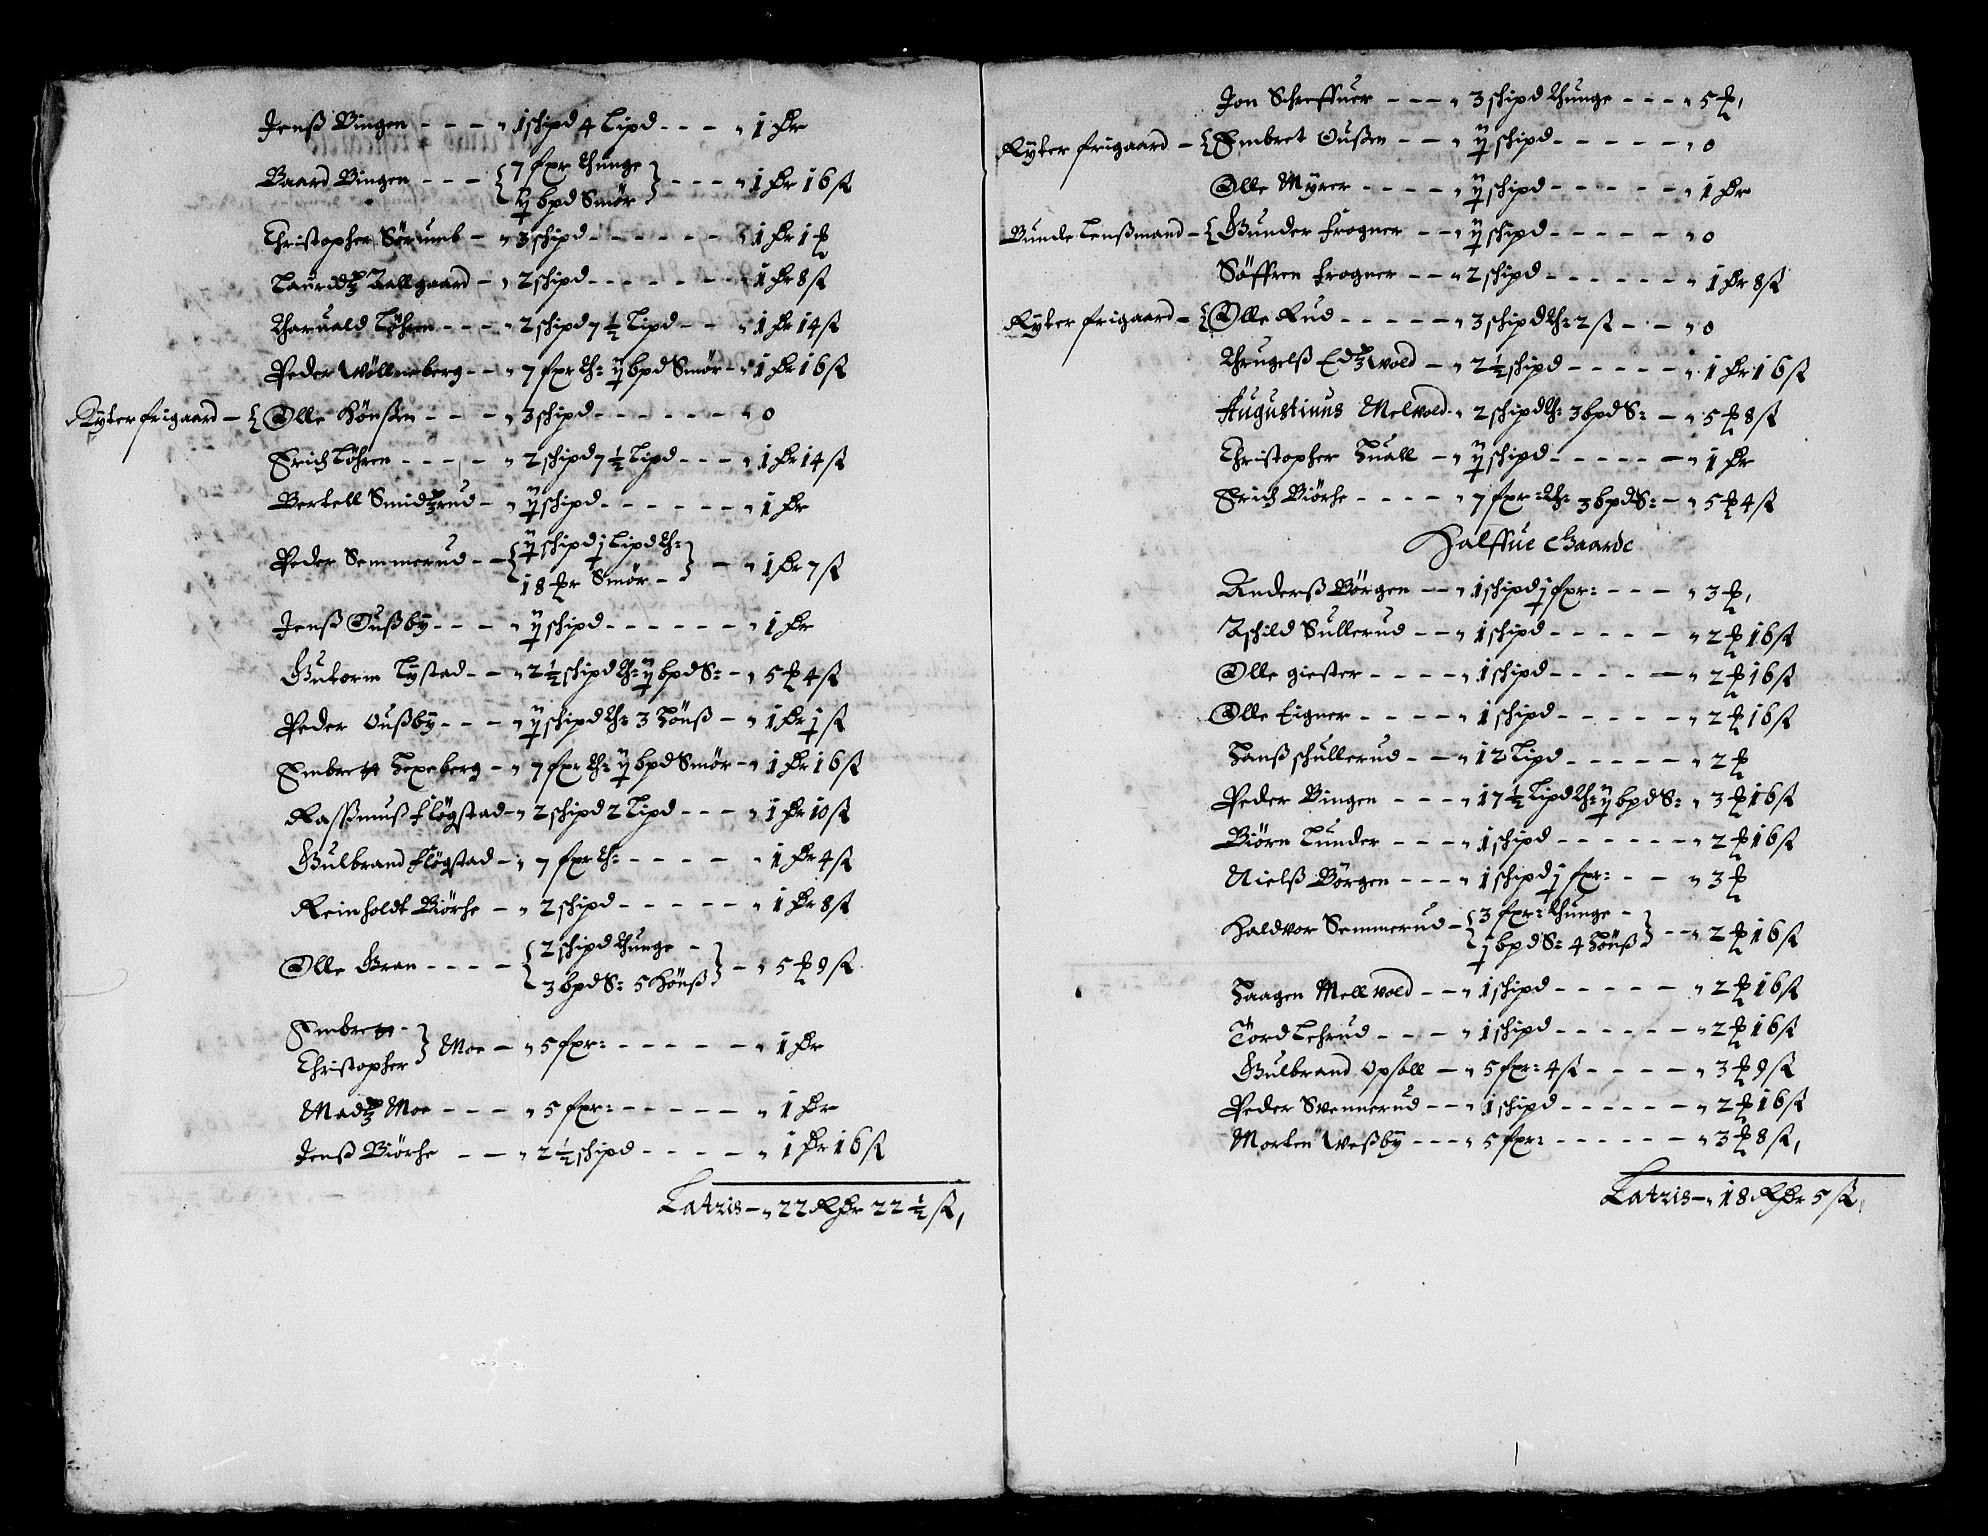 Jenß Bingen - - - - „ 1 schipd 4 Lipd - - - - „ 1 dr
Baard Bingen - - - { 7 fzr thunge
ij bpd Smör } - - - - „ 1 dr 16 ß
Christopher Sörumb - „ 3 schipd - - - - - - „ 1 dr 1 ort
Lauridtz Aallgaard - „ 2 schipd - - - - - - „ 1 dr 8 ß
Haruald Löhren - - - - „ 2 schipd 7½ Lipd - - „ 1 dr 14 ß
Peder Wöllneberg - - „ 7 fzr th: ij bpd Smör - „ 1 dr 16 ß
Ryter frigaard - { Olle Hönßen - - - „ 3 schipd - - - - - - „ 0
Erich Löhren - - - - - „ 2 schipd 7½ Lipd - - - „ 1 dr 14 ß
Bertell Smidtzrud - „ ij schipd - - - - - - „ 1 dr
Peder Semmerud - - { ij schipd j Lipd th:
18 mkr Smör - } - „ 1 dr 7 ß
Jenß Oußby - - - - „ ij schipd - - - - - - - „ 1 dr
Gutorm Lystad - - „ 2½ schipd th: ij bpd S: - „ 5 ort 4 ß
Peder Oußby - - - - „ ij schipd th: 3 Hönß - „ 1 dr j ß
Embrett Hexeberg - „ 7 fzr th: ij bpd Smör - „ 1 dr 16 ß
Raßmuß Fløgstad - „ 2 schipd 2 Lipd - - - „ 1 dr 10 ß
Gulbrand Fløgstad - „ 7 fzr th: - - - - - „ 1 dr 4 ß
Reinholdt Biörche - „ 2 schipd - - - - - „ 1 dr 8 ß
Olle Gran - - - - { 2 schipd thunge -
3 bpd S: 5 Hönß } - „ 5 ort 9 ß
Embrett -
Christopher } Moe - „ 5 fzr: - - - - - - „ 1 dr
Madtz Moe - - - - „ 5 fzr: - - - - - „ 1 dr
Jenß Biörche - - „ 2½ schipd - - - - „ 1 dr 16 ß
Latris - „ 22 Rdr 22½ ß,
Jon Schreffuer - - - „ 3 schipd thunge - - - „ 5 ort,
Ryter frigaard - { Embret Oußen - - „ ij schipd - - - - - „ 0
Olle Myrer - - - - „ ij schipd - - - - - „ 1 dr
Bunde Lenßmand - { Gunder Frogner - - „ ij schipd - - - - - „ 0
Söffren Frogner - - „ 2 schipd - - - - - - „ 1 dr 8 ß
Ryter frigaard - { Olle Rud - - - - - „ 3 schipd th: 2 ß - - „ 0
Thrugelß Edtzwold - „ 2½ schipd - - - - - „ 1 dr 16 ß
Augustinus Melvold - „ 2 schipd th: 3 bpd S: - „ 5 ort 8 ß
Christopher Huall - „ ij schipd - - - - - „ 1 dr
Erich Biörche - - - - „ 7 fzr: th: 3 bpd S: - „ 5 ort 4 ß
Halffue Gaarde
Anderß Börgen - - „ 1 schipd j fzr: - - - „ 3 ort,
Aschild Sullerud - - „ 1 schipd - - - - - „ 2 ort 16 ß
Olle giester - - - - „ 1 schipd - - - - - „ 2 ort 16 ß
Olle Eigner - - - - „ 1 schipd - - - - - „ 2 ort 16 ß
Hanß schullerud - - „ 12 Lipd - - - - - „ 2 ort
Peder Bingen - - - „ 17½ Lipd th: ij bpd S: „ 3 ort 16 ß
Biörn Lunder - - - - „ 1 schipd - - - - - - „ 2 ort 16 ß
Nielß Börgen - - - „ 1 schipd j fzr: - - „ 3 ort
Haldvor Semmerud - { 3 fzr: thunge -
j bpd S: 4 Hönß } - - „ 2 ort 16 ß
Haagen Mellvold - - „ 1 schipd - - - - - „ 2 ort 16 ß
Tord Lehrud - - - - „ 1 schipd - - - - - - „ 2 ort 16 ß
Gulbrand Opsall - „ 5 fzr: 4 ß - - - - - „ 3 ort 9 ß
Peder Svennerud - - „ 1 schipd - - - - - - „ 2 ort 16 ß
Morten Weßby - - - „ 5 fzr: - - - - - - „ 3 ort 8 ß,
Latris - „ 18 Rdr 5 ß,